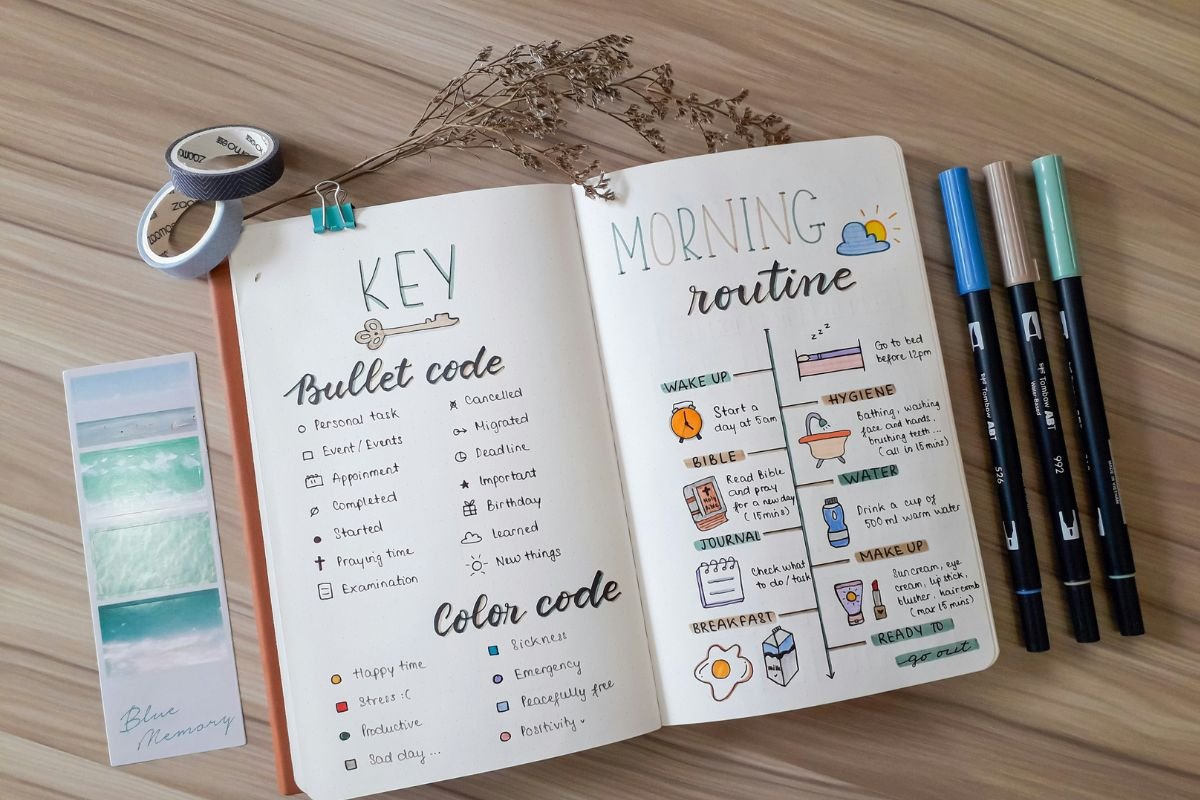 zoomoe
zoomoe
KEY
Bullet code
Personal task
Event/Events
Appoinment
Completed
Started
Praying time
Examination
Cancelled
Migrated
Deadline
Important
Birthday
learned
New things
Color code
Happy time
Stress :(
Productive
Sad day ...
Sickness
Emergency
Peacefully free
Positivity
MORNING
routine
zzz
Go to bed
before 12pm
WAKE UP
Start a
day at 5am
HYGIENE
Bathing, washing
face and hands,
brushing teeth ...
(all in 15mins)
BIBLE
HOLY
BIBLE
Read Bible
and pray
for a new day
(15mins)
WATER
Drink a cup of
500ml warm water
JOURNAL
Check what
to do / task
MAKE UP
Suncream, eye
cream, lip stick,
blusher, hair comb
(max 15 mins)
BREAKFAST
milk
READY TO
go out
Blue
Memory
Tombow ABT
526
Tombow ABT
992